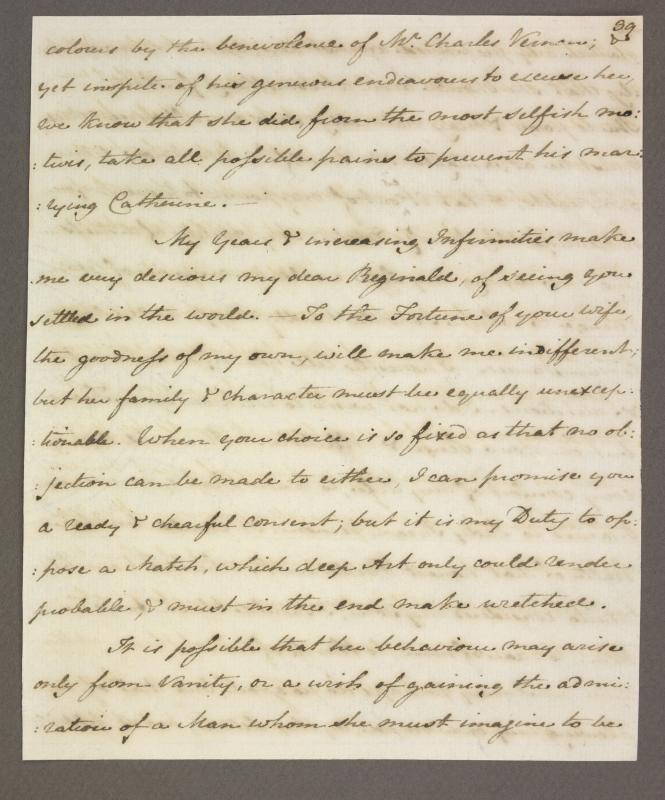 39
colours by the benevolence of Mr. Charles Vernon; &
yet inspite of his generous endeavours to excuse her,
we know that she did, from the most selfish mo:
:tives, take all possible pains to prevent his mar:
:rying Catherine. —
My Years & increasing Infirmities make
me very desirous my dear Reginald, of seeing you
settled in the world. — To the Fortune of your wife,
the goodness of my own, will make me indifferent;
but her family & character must be equally unexcep:
:tionable. When your choice is so fixed as that no ob:
:jection can be made to either, I can promise you
a ready & chearful consent; but it is my Duty to op:
:pose a Match, which deep Art only could render
probable, & must in the end make wretched.
It is possible that her behaviour may arise
only from Vanity, or a wish of gaining the admi:
:ration of a Man whom she must imagine to be